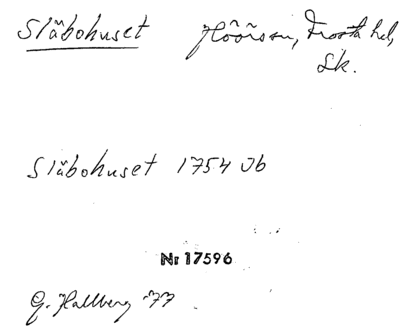 Släbohuset Höörs sn, Frosta hd,
Sk.
Släbohuset 1754 Jb
Nr 17596
G. Hallberg 77